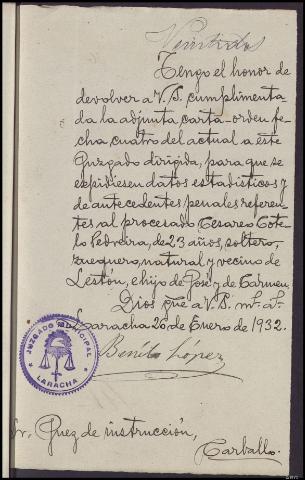 Veintidos
Tengo el honor de
devolver a V.S. cumplimenta-
da la adjunta carta-orden fe-
cha cuatro del actual a este
Juzgado dirigida, para que se
expidiesen datos estadisticos y
de antecedentes penales referen-
tes al procesado Cesareo Cote-
lo Pedreira, de 23 años, soltero,
zuequero, natural y vecino de
Lestón, e hijo de José y de Carmen.
Dios gue a V.S. ms. as.
Laracha 26 de Enero de 1932.
Benito López
JUZGADO MUNICIPAL
LARACHA
Sr. Juez de instrucción,
Carballo.